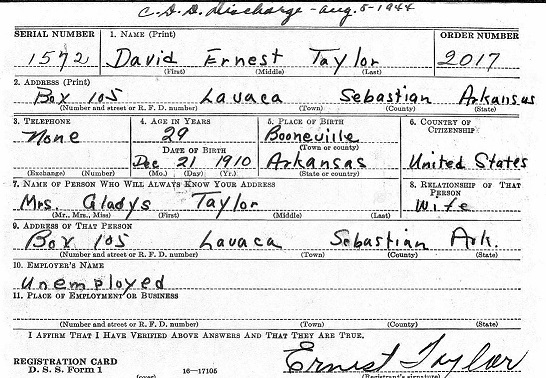 C.D.D. Discharge - Aug. 5-1944
SERIAL NUMBER 1. NAME (Print) ORDER NUMBER
1572 David Ernest Taylor 2017
(First) (Middle) (Last)
2. ADDRESS (Print)
Box 105 Lavaca Sebastian Arkansas
(Number and street or R. F. D. number) (Town) (County) (State)
3. TELEPHONE 4. AGE IN YEARS 5. PLACE OF BIRTH 6. COUNTRY OF CITIZENSHIP
None 29 Booneville
(Town or county)
DATE OF BIRTH
Dec 21 1910 Arkansas United States
(Exchange) (Number) (Mo.) (Day) (Yr.) (State or country)
7. NAME OF PERSON WHO WILL ALWAYS KNOW YOUR ADDRESS 8. RELATIONSHIP OF THAT PERSON
Mrs. Gladys Taylor Wife
(Mr., Mrs., Miss) (First) (Middle) (Last)
9. ADDRESS OF THAT PERSON
Box 105 Lavaca Sebastian Ark.
(Number and street or R. F. D. number) (Town) (County) (State)
10. EMPLOYER'S NAME
Unemployed
11. PLACE OF EMPLOYMENT OR BUSINESS
(Number and street or R. F. D. number) (Town) (County) (State)
I AFFIRM THAT I HAVE VERIFIED ABOVE ANSWERS AND THAT THEY ARE TRUE.
Ernest Taylor
REGISTRATION CARD
D. S. S. Form 1 16—17105
(over) (Registrant's signature)